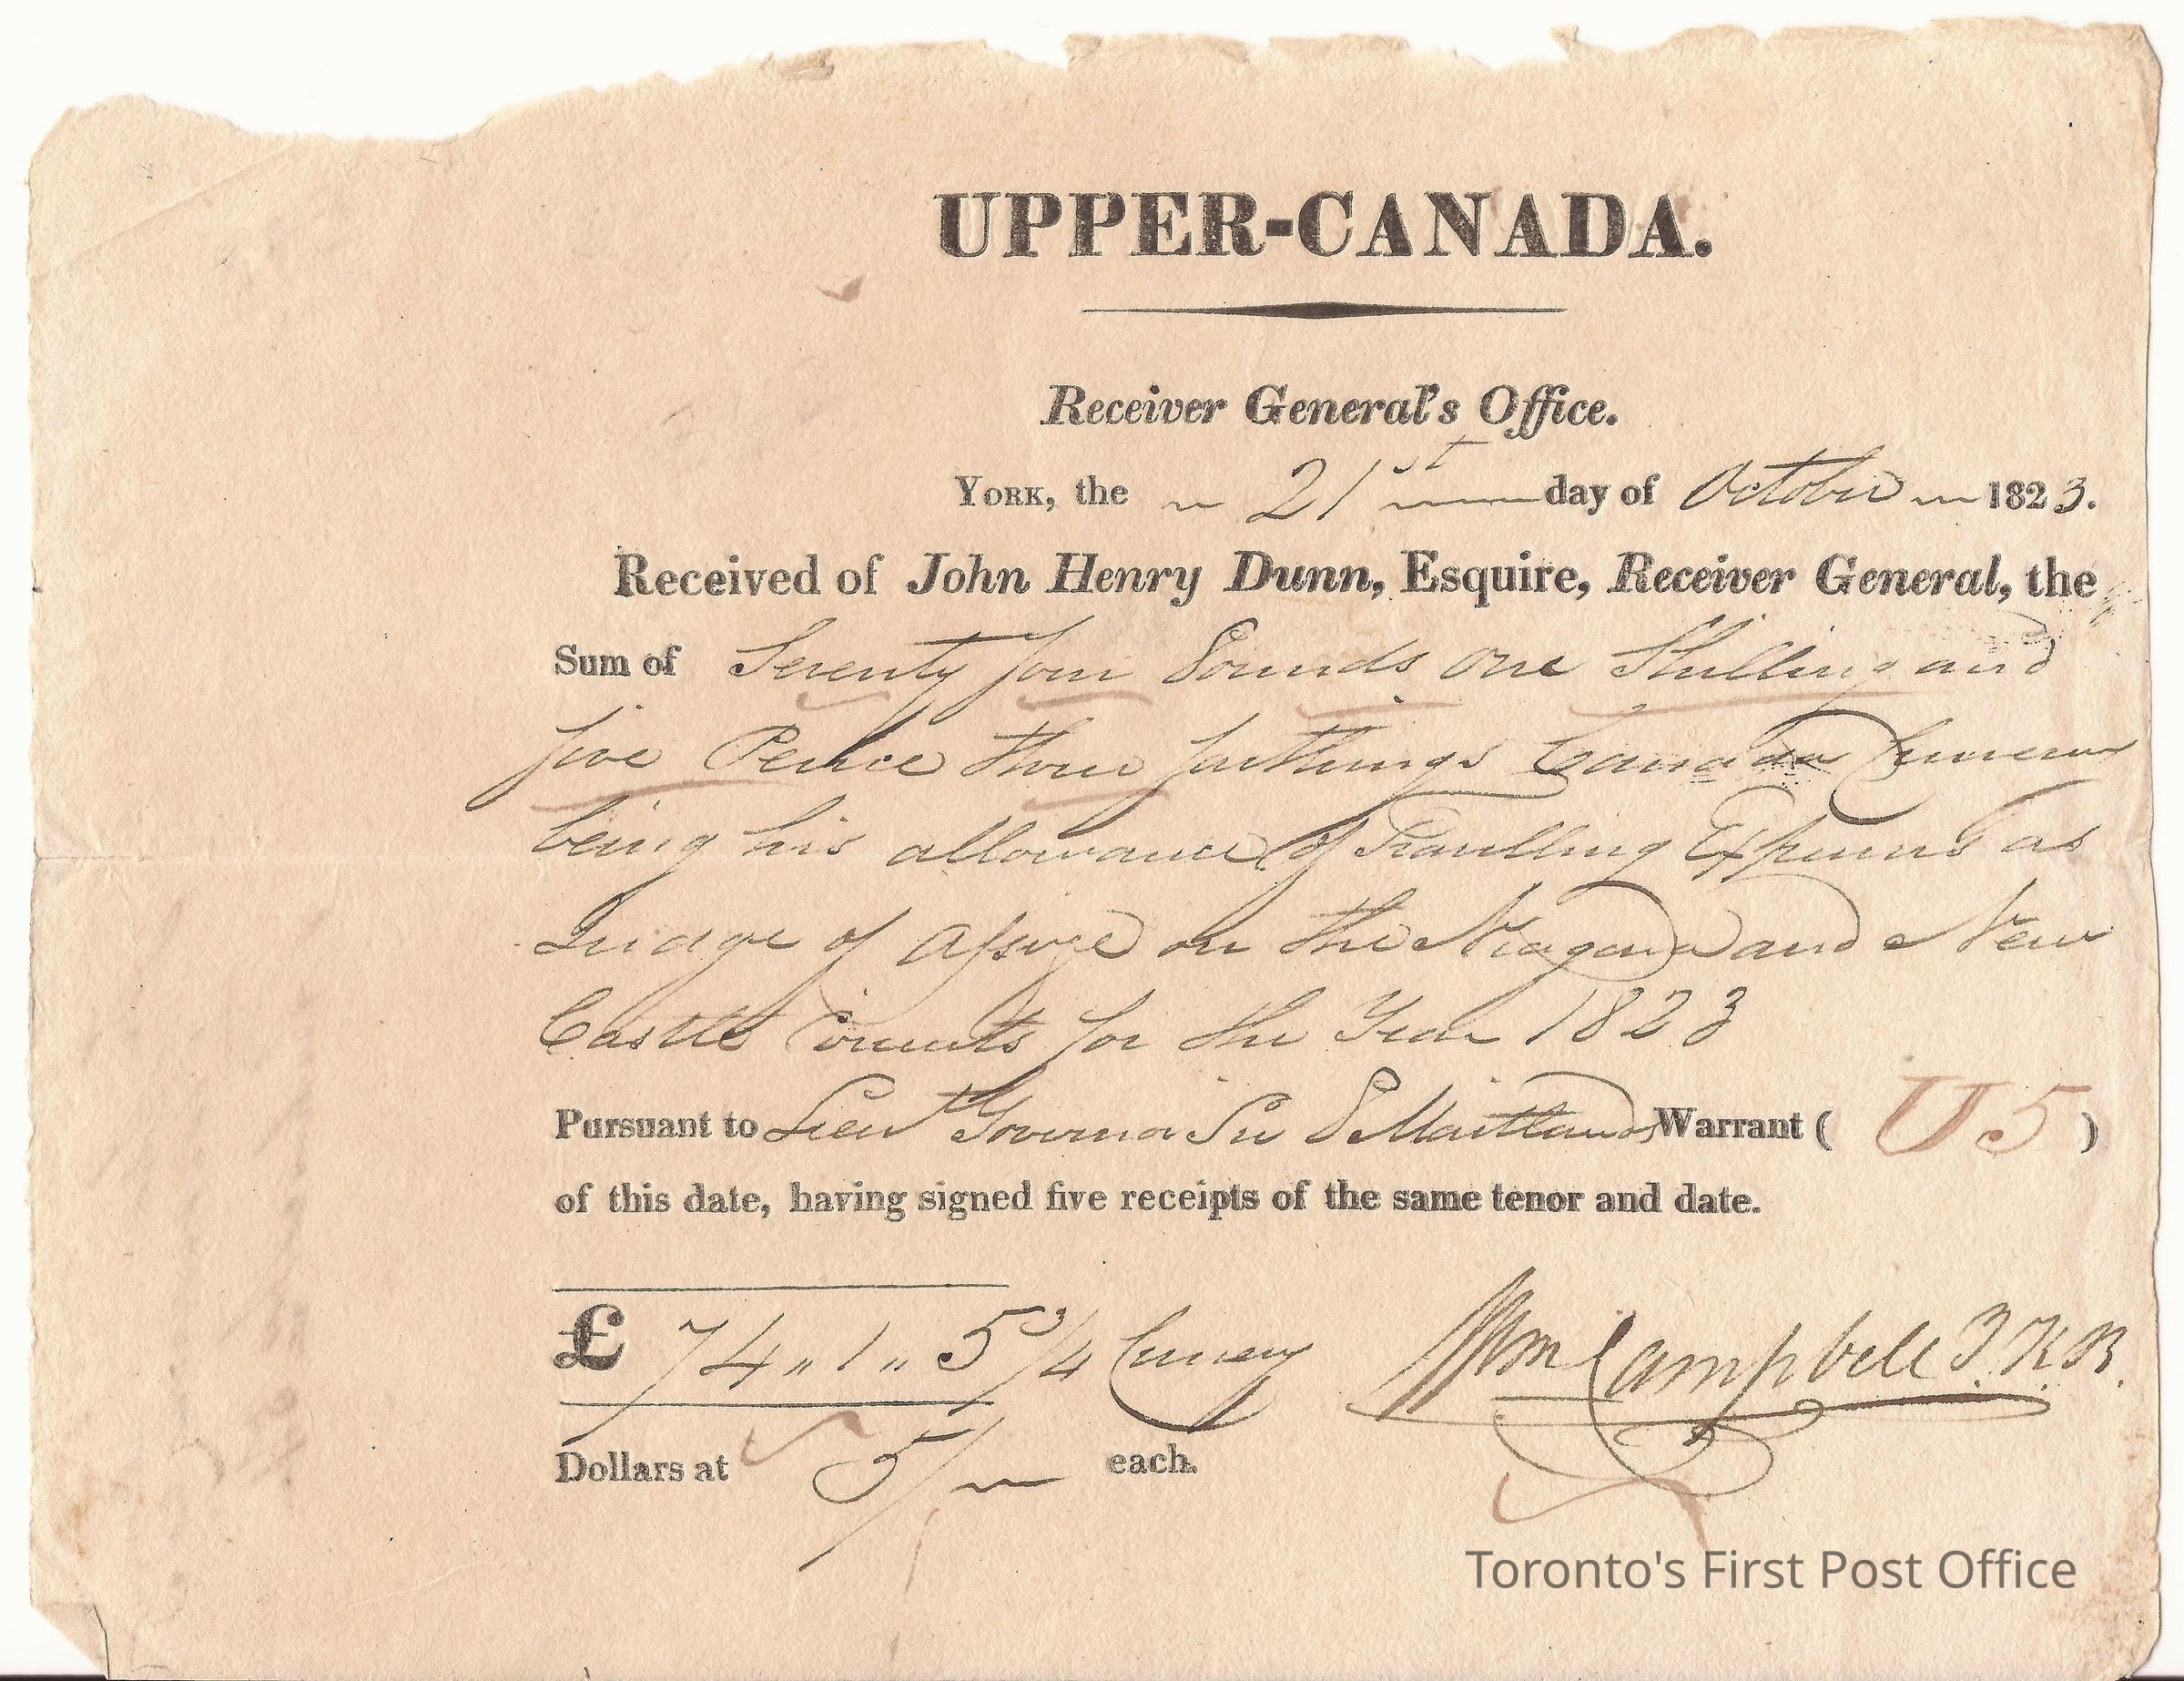 UPPER-CANADA.
Receiver General's Office.
YORK, the 21st day of October 1823.
Received of John Henry Dunn, Esquire, Receiver General, the
Sum of Seventy four Pounds One Shilling and
five Pence three farthings Canada Currency
being his allowance of Travelling Expenses as
Judge of Assize on the Niagara and New
Castle Circuits for the Year 1823
Pursuant to Lieut Governor Sir P Maitlands Warrant ( U 5 )
of this date, having signed five receipts of the same tenor and date.
£ 74 " 1 " 5 3/4 Currency Wm Campbell J. K. B.
Dollars at 5/ each.
Toronto's First Post Office